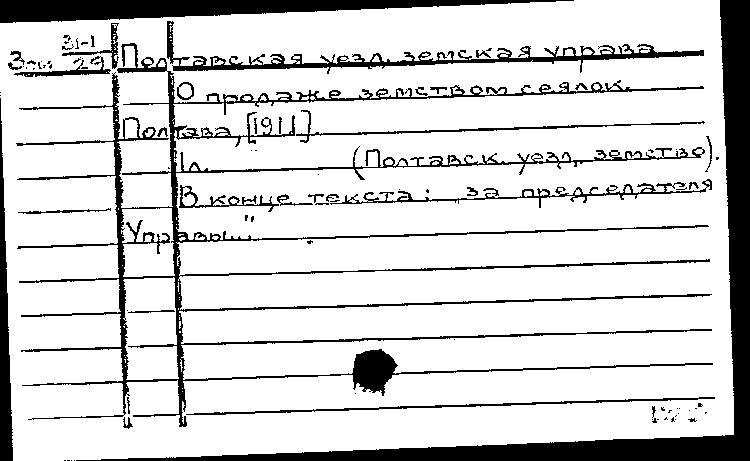 31-1
29
Полтавская уезд. земская управа
О продаже земством сеялок.
Полтава, [1911].
1л. (Полтавск. уезд. земство).
В конце текста: „за председателя
Управы..."